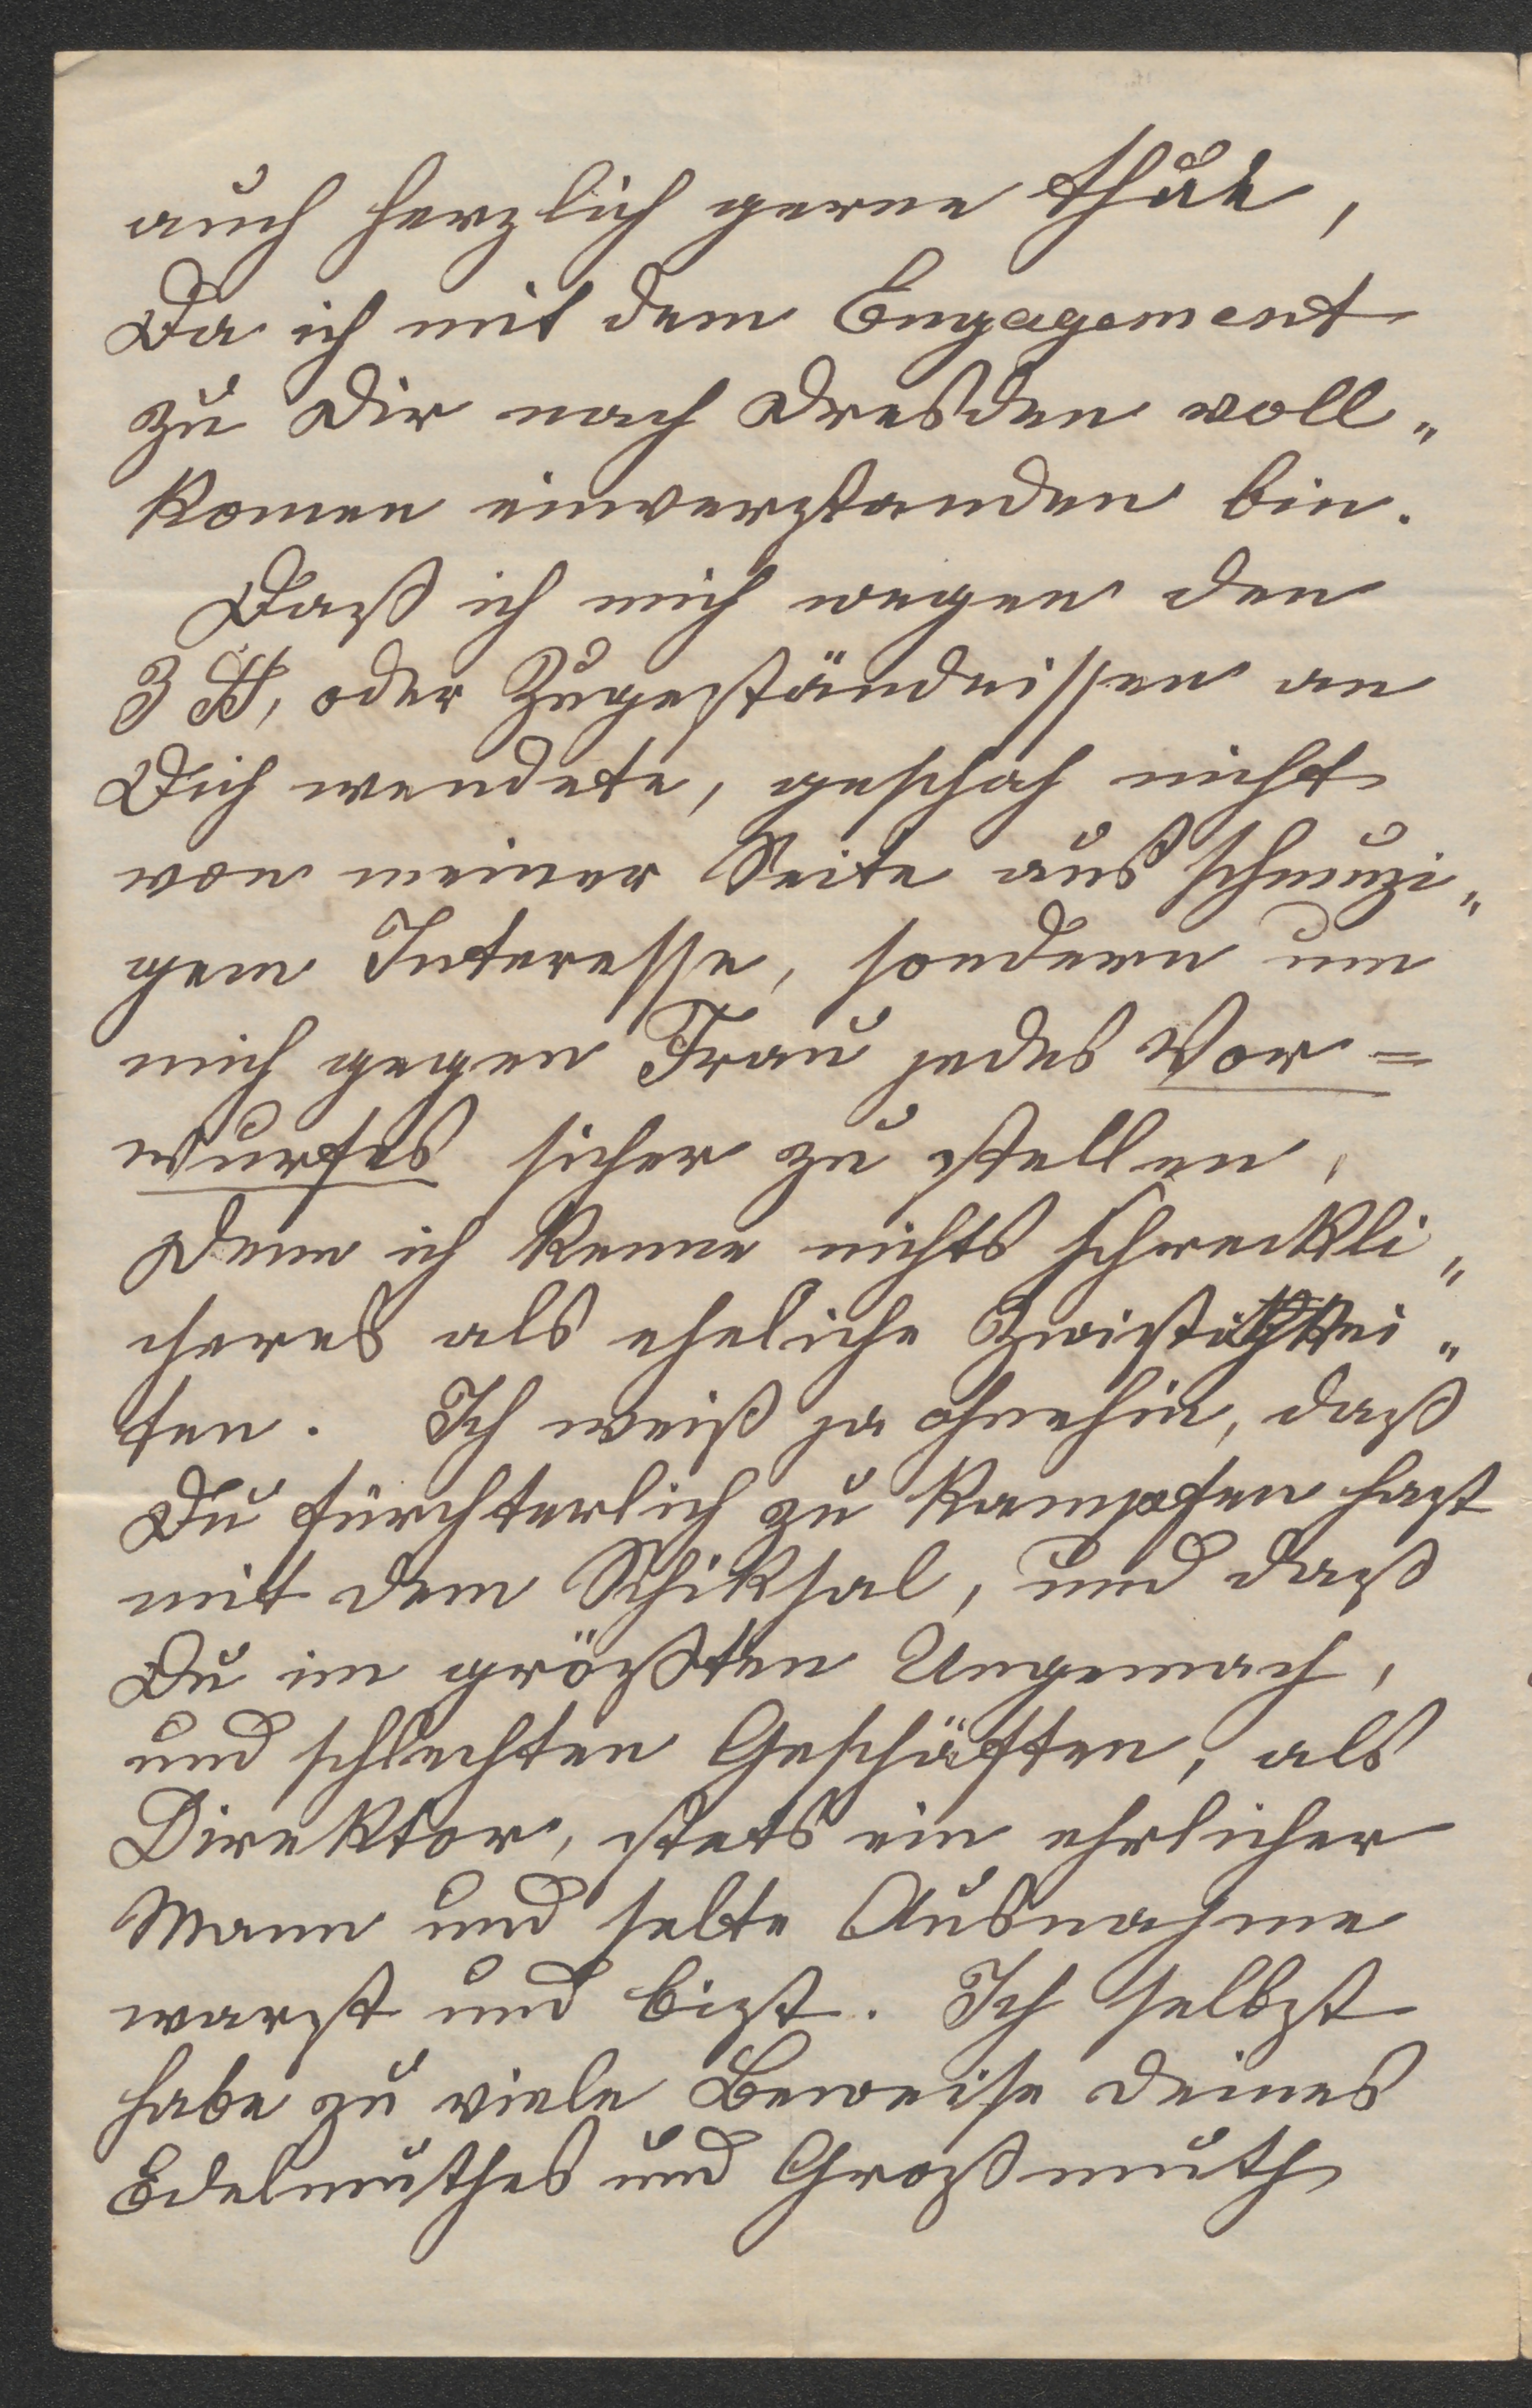 auch herzlich gerne thue,
Da ich mit dem Engagement
zu Dir nach Dresden voll„
komen einverstanden bin.
Daß ich mich wegen den
3 fl, oder Zugeständnissen an
Dich wendete, geschah nicht
von meiner Seite aus schmuzi„
gem Interesse, sondern um
mich gegen Frau jedes Vor=
wurfes sicher zu stellen,
Denn ich kenne nichts schreckli„
cheres als eheliche Zwistigkei„
ten. Ich weiß ja ohnehin, daß
Du fürchterlich zu kampfen hast
mit dem Schiksal, und daß
Du im größten Ungemach,
und schlechten Geschäften, als
Direktor, stets ein ehrlicher
Mann und selte Ausnahme
warst und bist. Ich selbst
habe zu viele Beweise deines
Edelmuthes und Großmuth